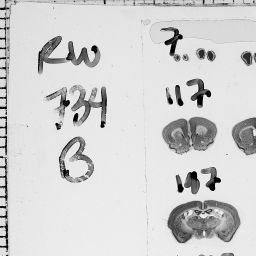 RW
734
B
7
117
147